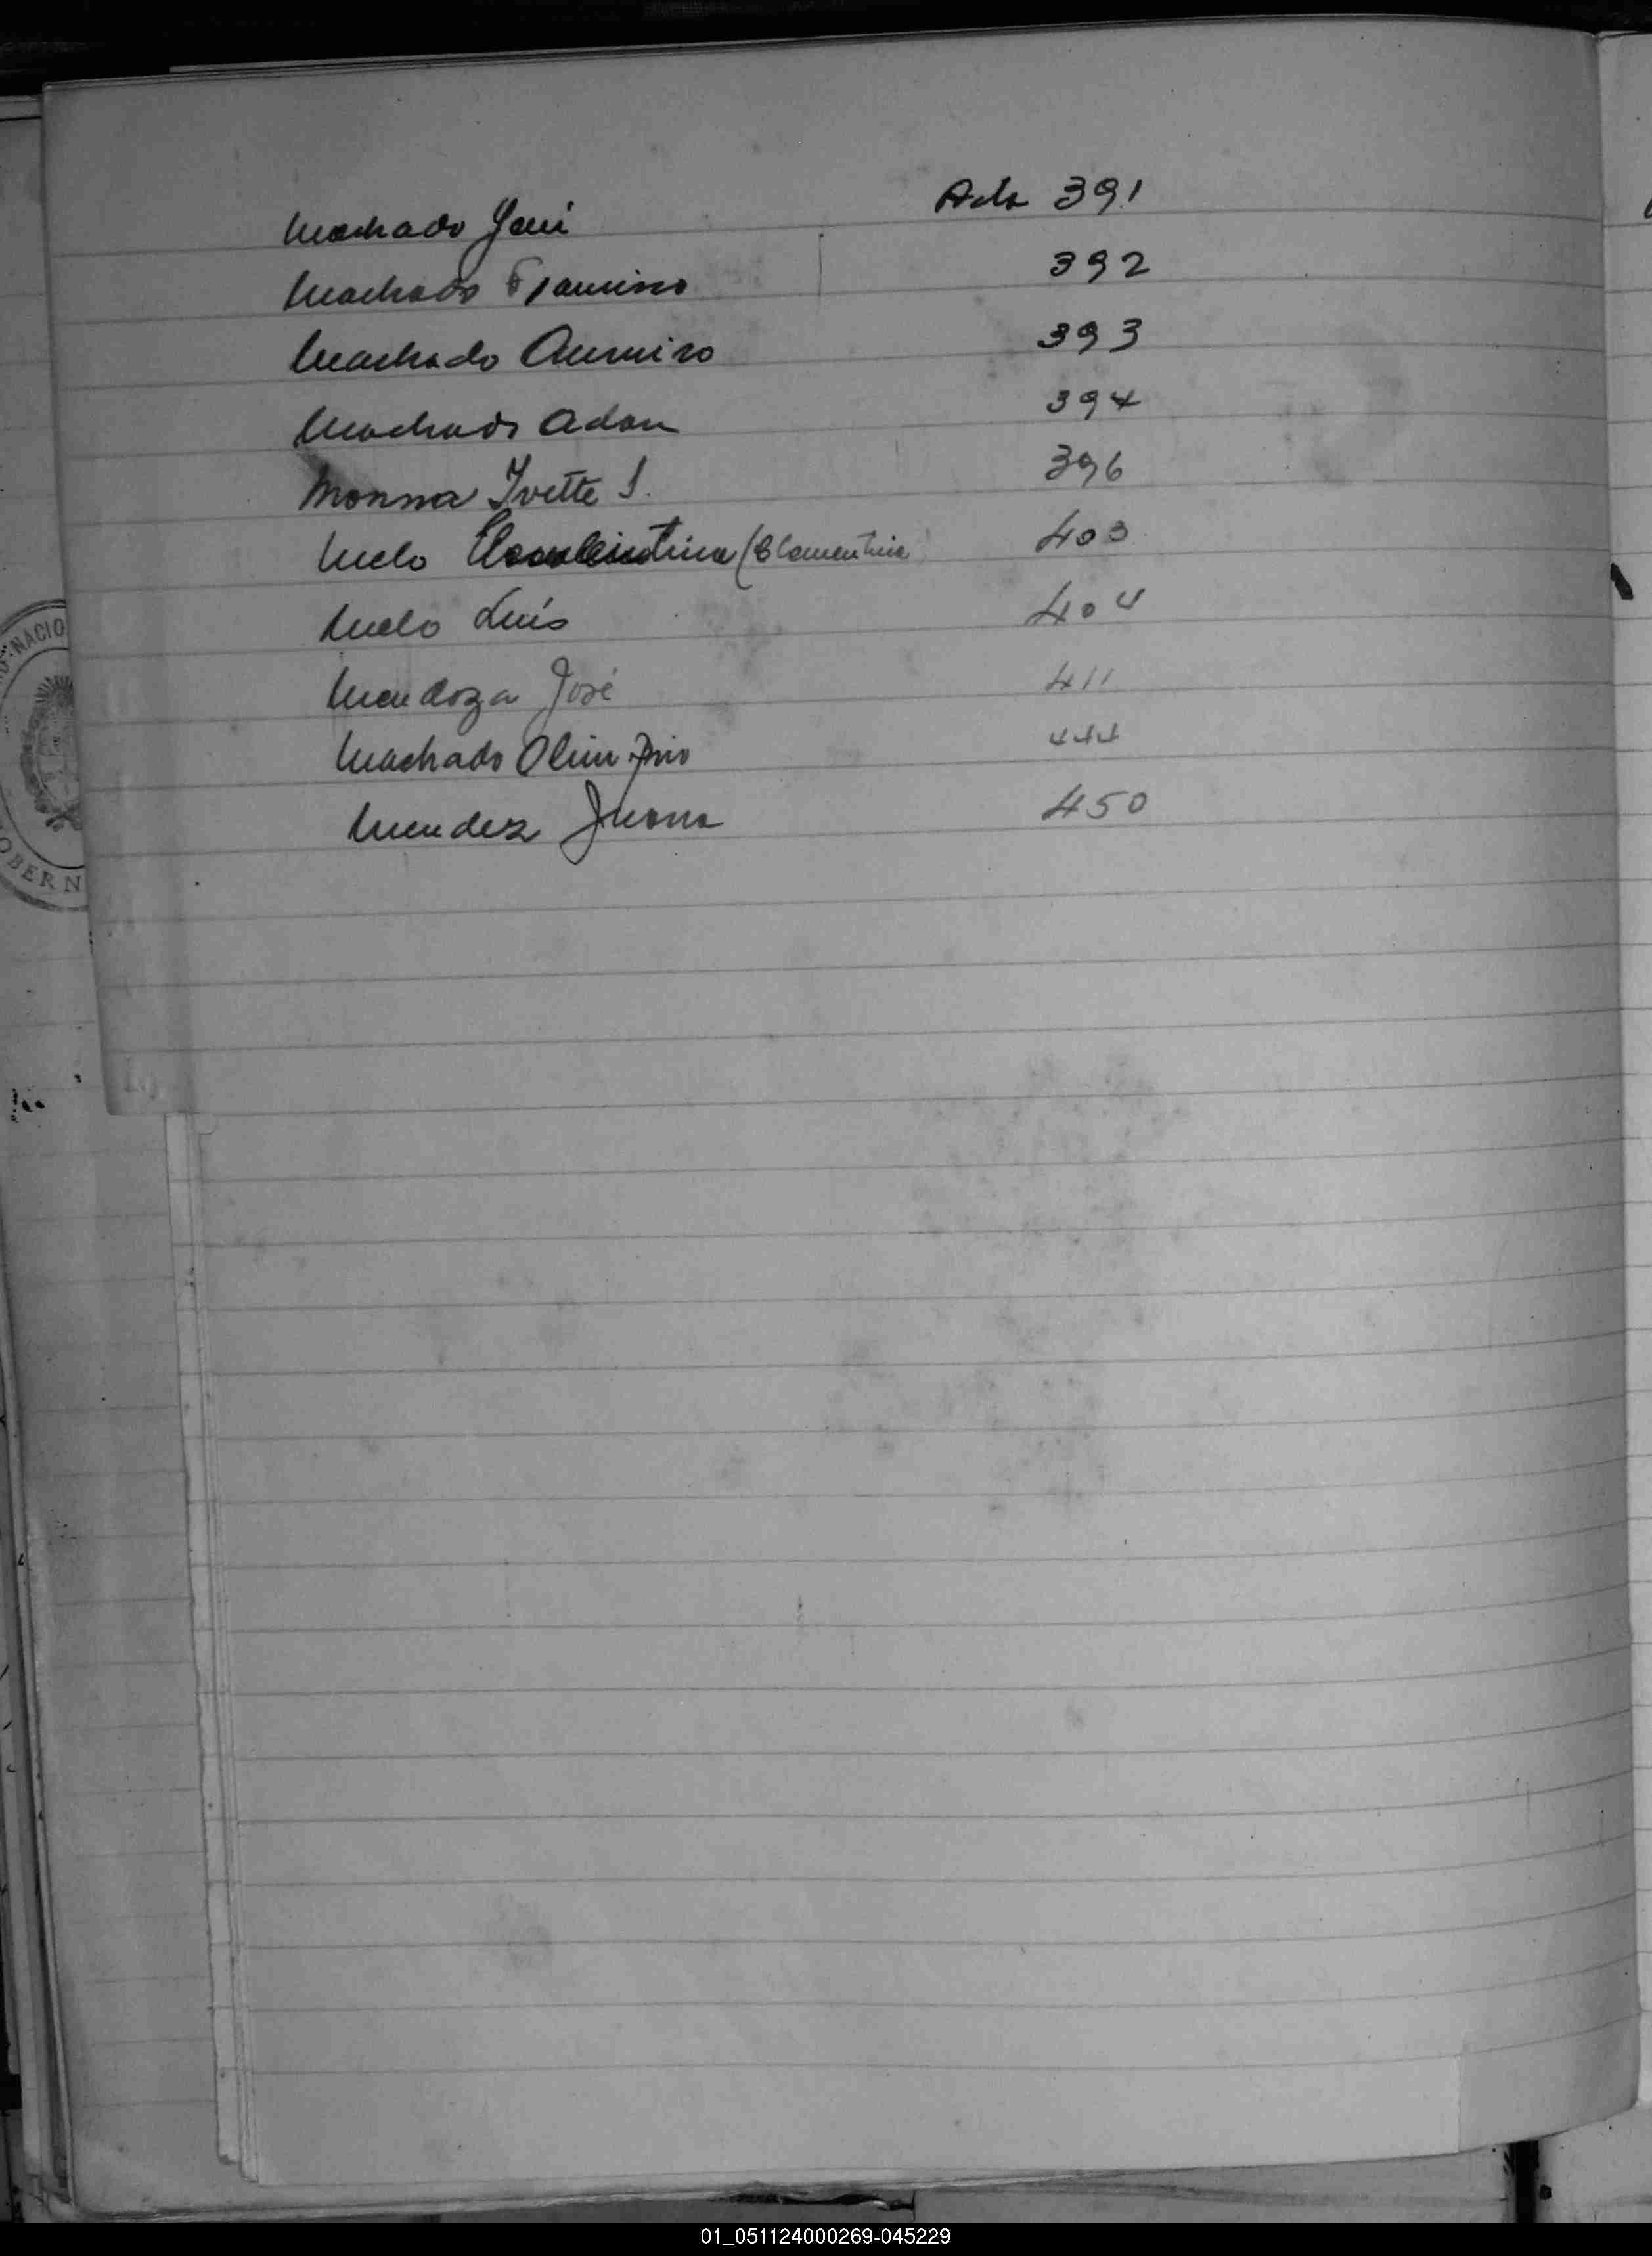 Machado Yeni Acta 391
Machado Francisco 392
Machado Anmiro 393
Machado Adan 394
Monssa Ivette S. 396
Melo (Clementina) 403
Melo Luís 404
Mendoza José 411
Machado Olimpio 444
Mendez Juana 450
NACIO
OBERN
01_051124000269-045229